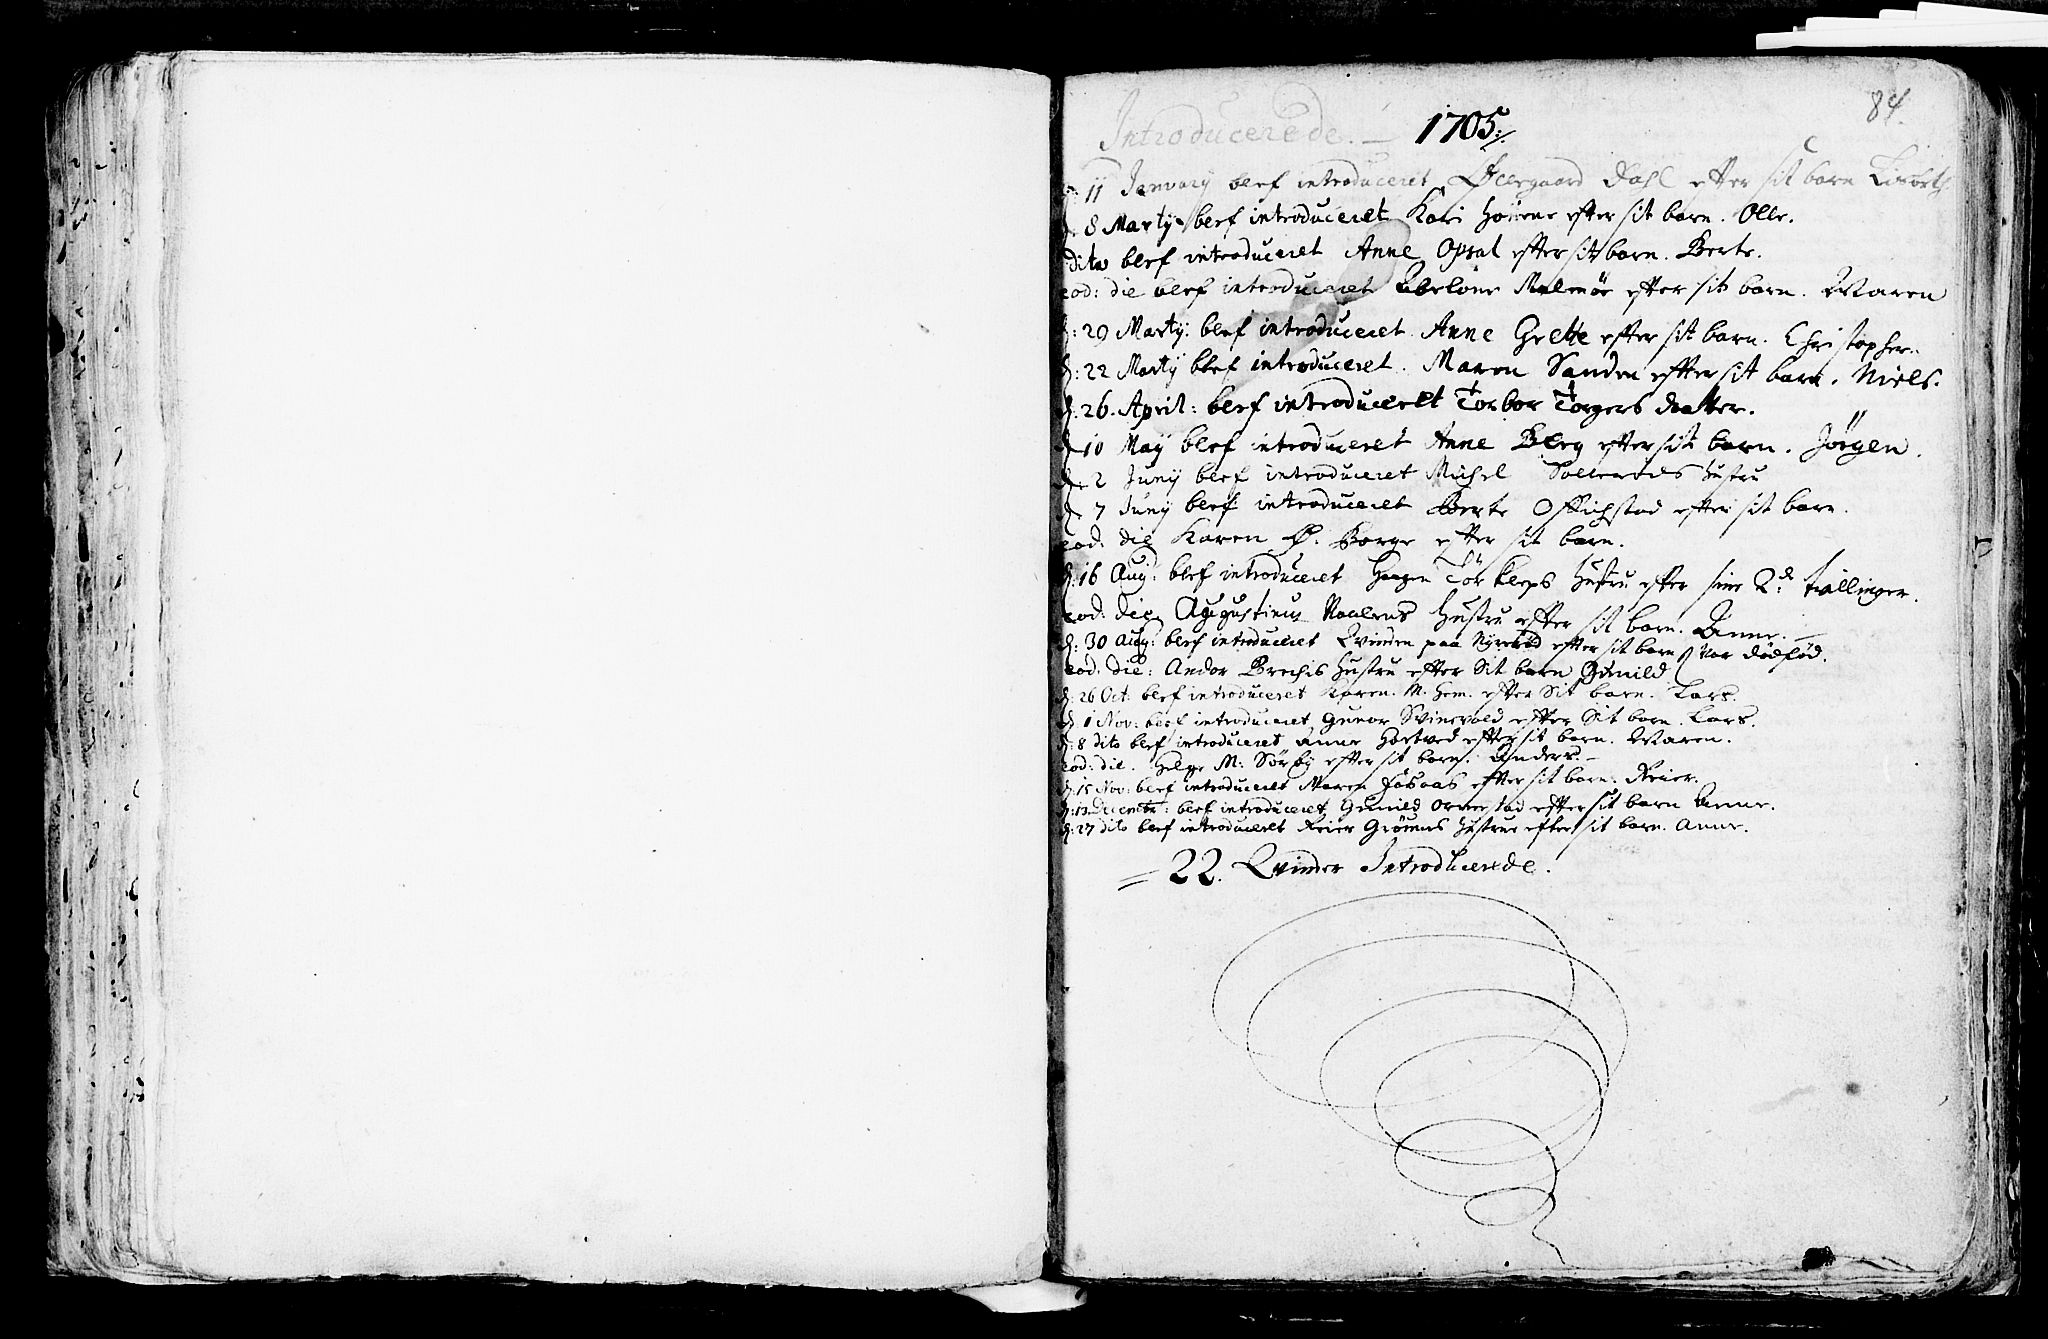 84.
Introducerede. — 1705:/.
d: 11 Januarij blef introduceret Øllegaard Dahl efter sit barn
d. 8 Martij blef introduceret Kari efter sit barn. Olle.
dito blef introduceret Anne Opsal efter sit barn. Berte.
eod: die blef introduceret Abelone Malmöe efter sit barn. Maren
d: 29 Martij: blef introduceret. Anne Grette efter sit barn. Christopher.
d: 22 Martij blef introduceret. Maren Sanden efter sit barn. Niels.
d: 26. April: blef introduceret Torbor Torgers daatter.
d 10 Maij blef introduceret Anne Berg efter sit barn. Jörgen.
d. 2 Junij blef introduceret Michel Hustru
d. 7 Junij blef introduceret Berte efter sit barn.
eod. die Karen Ø. Borge efter sit barn.
d: 16 Aug: blef introduceret Haagen Tör Kleps Hustru efter sine 2de tvillinger.
eod: die. Augustinus Hustru efter sit barn. Anne. —
d: 30 Aug: blef introduceret Qvinden paa efter sit barn Var dödföd.
eod: die: Andor Hustru efter Sit barn Gunild
d: 26 Oct: blef introduceret Karen. M. Hem. efter Sit barn. Lars.
d 1 Nov: blef introduceret Gunor Svinevold efter Sit barn. Lars.
d: 8 dito blef introduceret Anne Hortved efter sit barn. Maren.
eod: die. Helge M: Sörby efter sit barn. Anders. —
d: 15 Nov: blef introduceret Maren Fossaas efter sit barn. Reier.
d: 13 Decembr: blef introduceret Gunild Ormestad efter sit barn Anne.
d: 27 dito blef introduceret Reier Grönnes Hustrue efter sit barn. Anne.
= 22. Qvinder Introducerede.